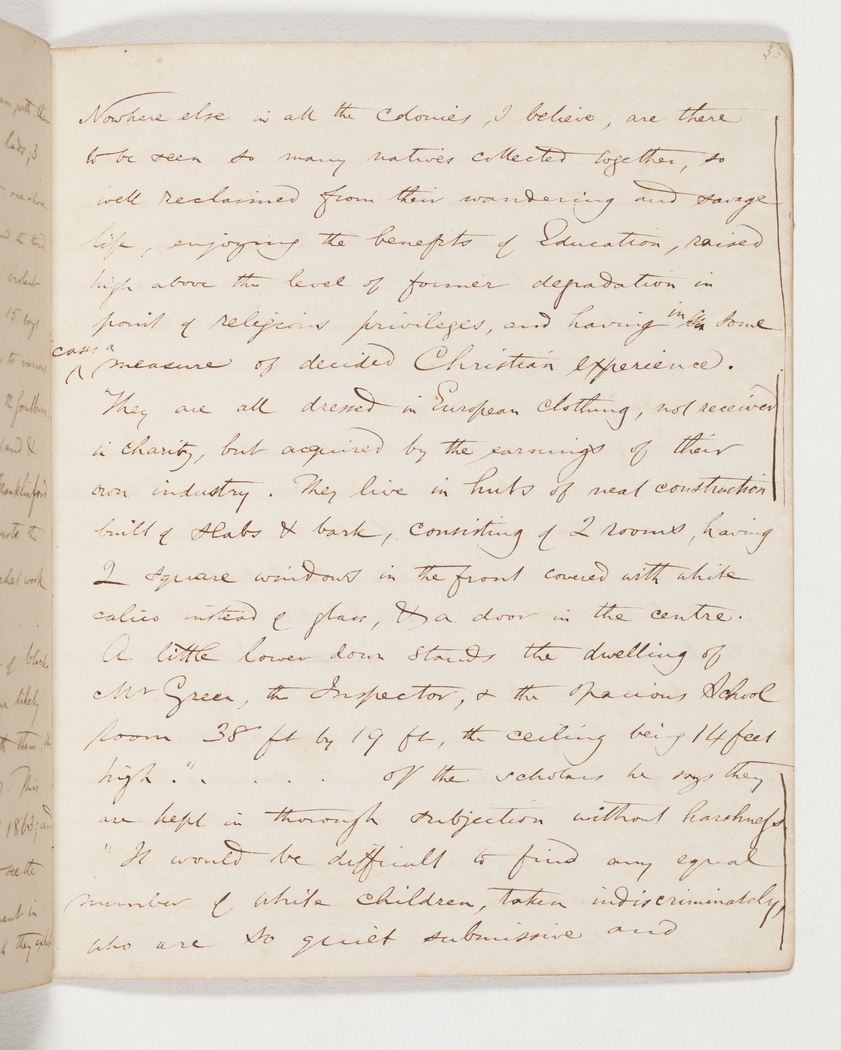 35
Nowhere else in all the Colonies, I believe, are there
to be seen so many natives collected together, so
well reclaimed from their wandering and savage
life, enjoying the benefits of Education, raised
high above the level of former degradation in
point of religious privileges, and having in some
cases a measure of decided Christian experience.
"They are all dressed in European clothing, not received
in charity, but acquired by the earnings of their
own industry. They live in huts of neat construction
built of slabs & bark, consisting of 2 rooms, having
2 square windows in the front covered with white
calico instead of glass, & a door in the centre.
A little lower down stands the dwelling of
Mr Green, the Inspector, & the spacious School
room 38 ft by 19 ft, the ceiling being 14 feet
high." . . . . Of the scholars he says they
are kept in thorough subjection without harshness
"It would be difficult to find any equal
number of white children, taken indiscriminately,
who are so quiet submissive and